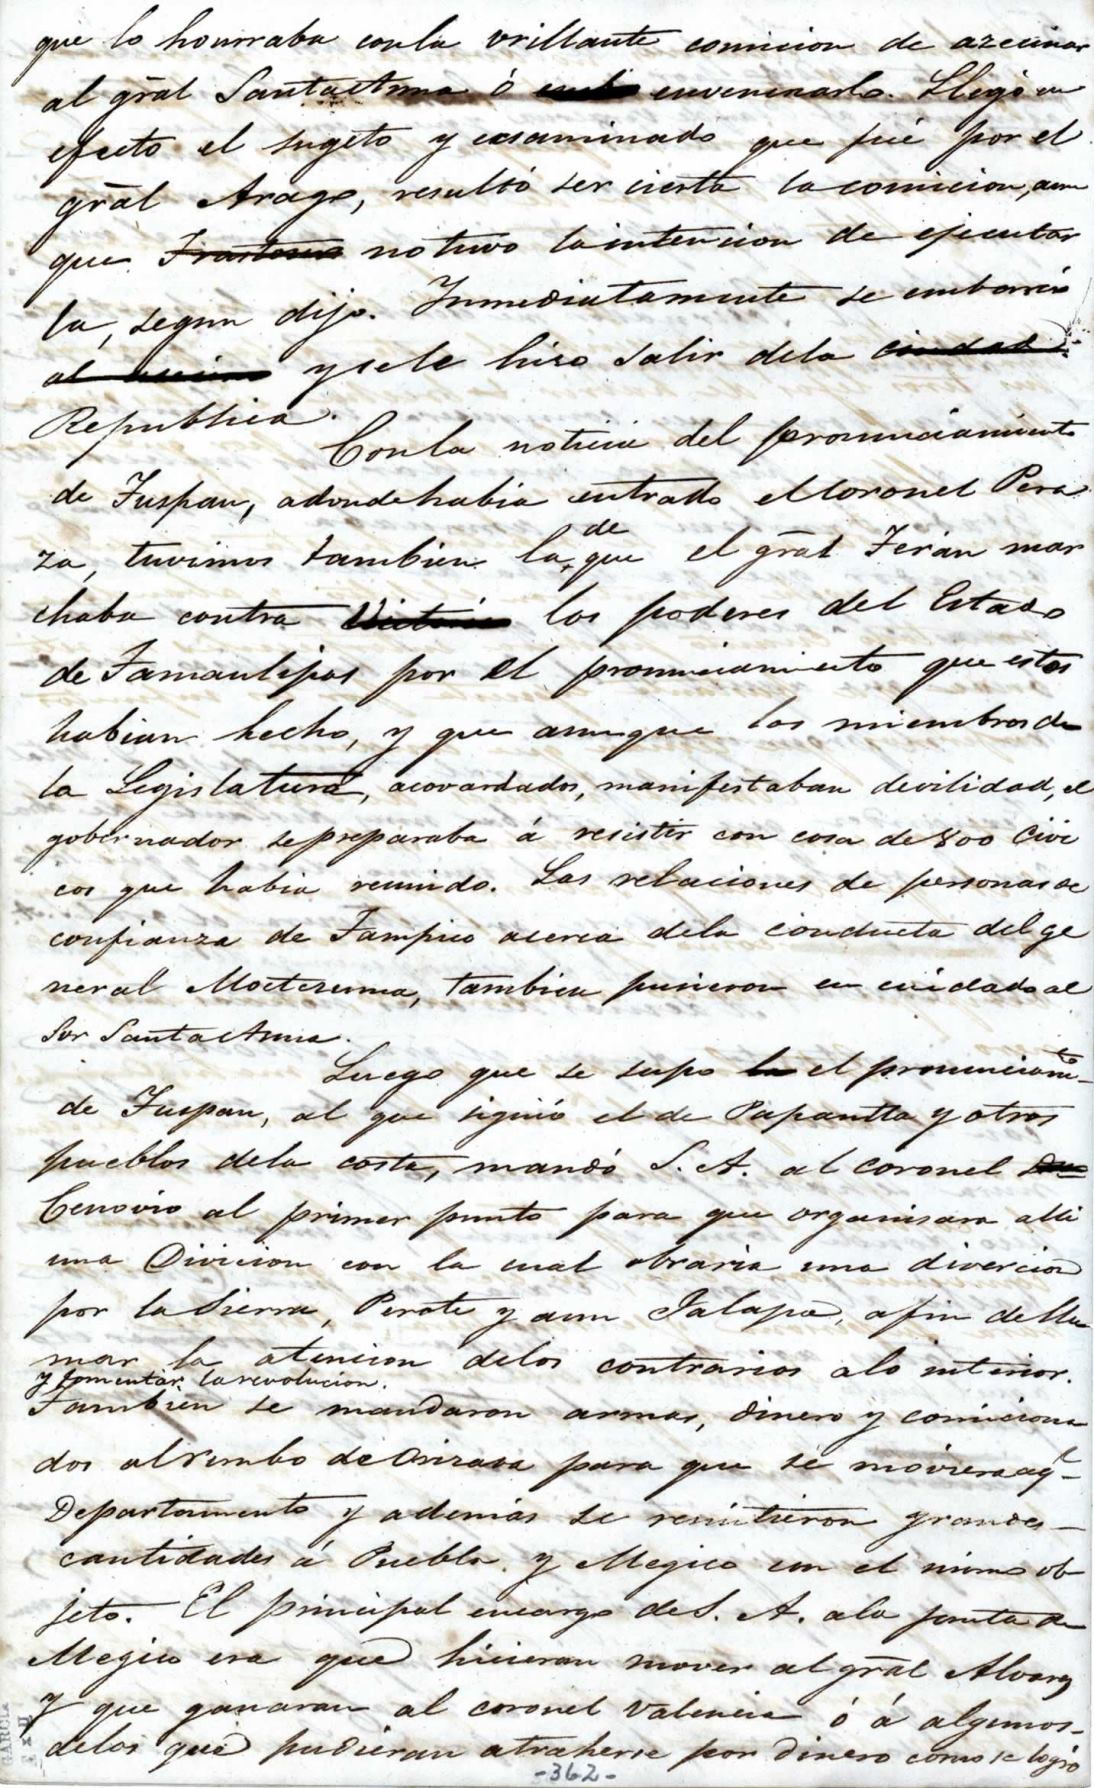 que lo honrraba con la vrillante comicion de azecinar
al grāl Santa Anna ó envenenarlo. Llegó en
efecto el sugeto y ecsaminado que fué por el
grāl Arago, resultó ser cierta la comicion, aun
que Frastorno no tuvo la intencion de ejecutar
la, segun dijo. Inmediatamente se embarcó
al y se le hiso salir dela ciudad
Republica.
Con la noticia del pronunciamiento
de Tuspan, adonde habia entrado el Coronel Pera
za, tuvimos tambien la de que el grāl Terán mar
chaba contra Victoria los poderes del Estado
de Tamaulipas por el pronunciamiento que estos
habian hecho, y que aunque los miembros de
la Legislatura, acovardados, manifestaban devilidad, el
gobernador se preparaba á resistir con cosa de 800 Civi
cos que habia reunido. Las relaciones de personas de
confianza de Tampico acerca dela conducta del ge
neral Moctezuma, tambien pusieron en cuidado al
Sor Santa Anna.
Luego que se supo la el pronunciamto
de Tuspan, al que siguió el de Papantla y otros
pueblos dela costa, mandó S. A. al coronel
Cenovio al primer punto para que organisara alli
una Divicion con la cual obraria una divercion
por la Sierra, Perote y aun Jalapa, afin de lla
mar la atencion delos contrarios alo interior.
y fomentar la revolucion.
Tambien se mandaron armas, dinero y comiciona
dos al rumbo de Orizava para que se moviera aql
Departamento y además se remitieron grandes
cantidades á Puebla y Megico con el mismo ob
jeto. El principal encargo de S. A. ala junta de
Megico era que hicieran mover al grāl Alvarez
y que ganaran al coronel Valencia ó á algunos
delos que pudieran atraherse por dinero como se logró
-362-